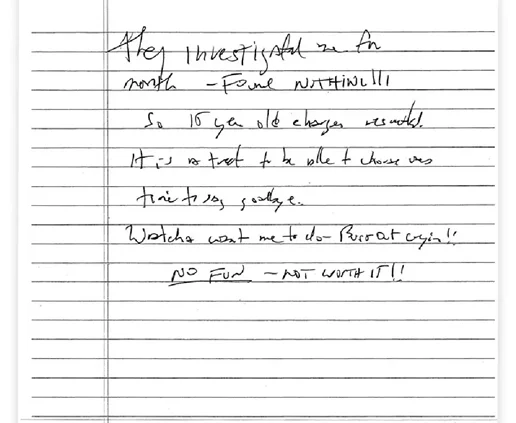 They investigated me for
month — FOUND NOTHING!!!
So 15 year old charges resulted.
It is a treat to be able to choose ones
time to say goodbye.
Watcha want me to do — Burst out cryin!!
NO FUN — NOT WORTH IT!!